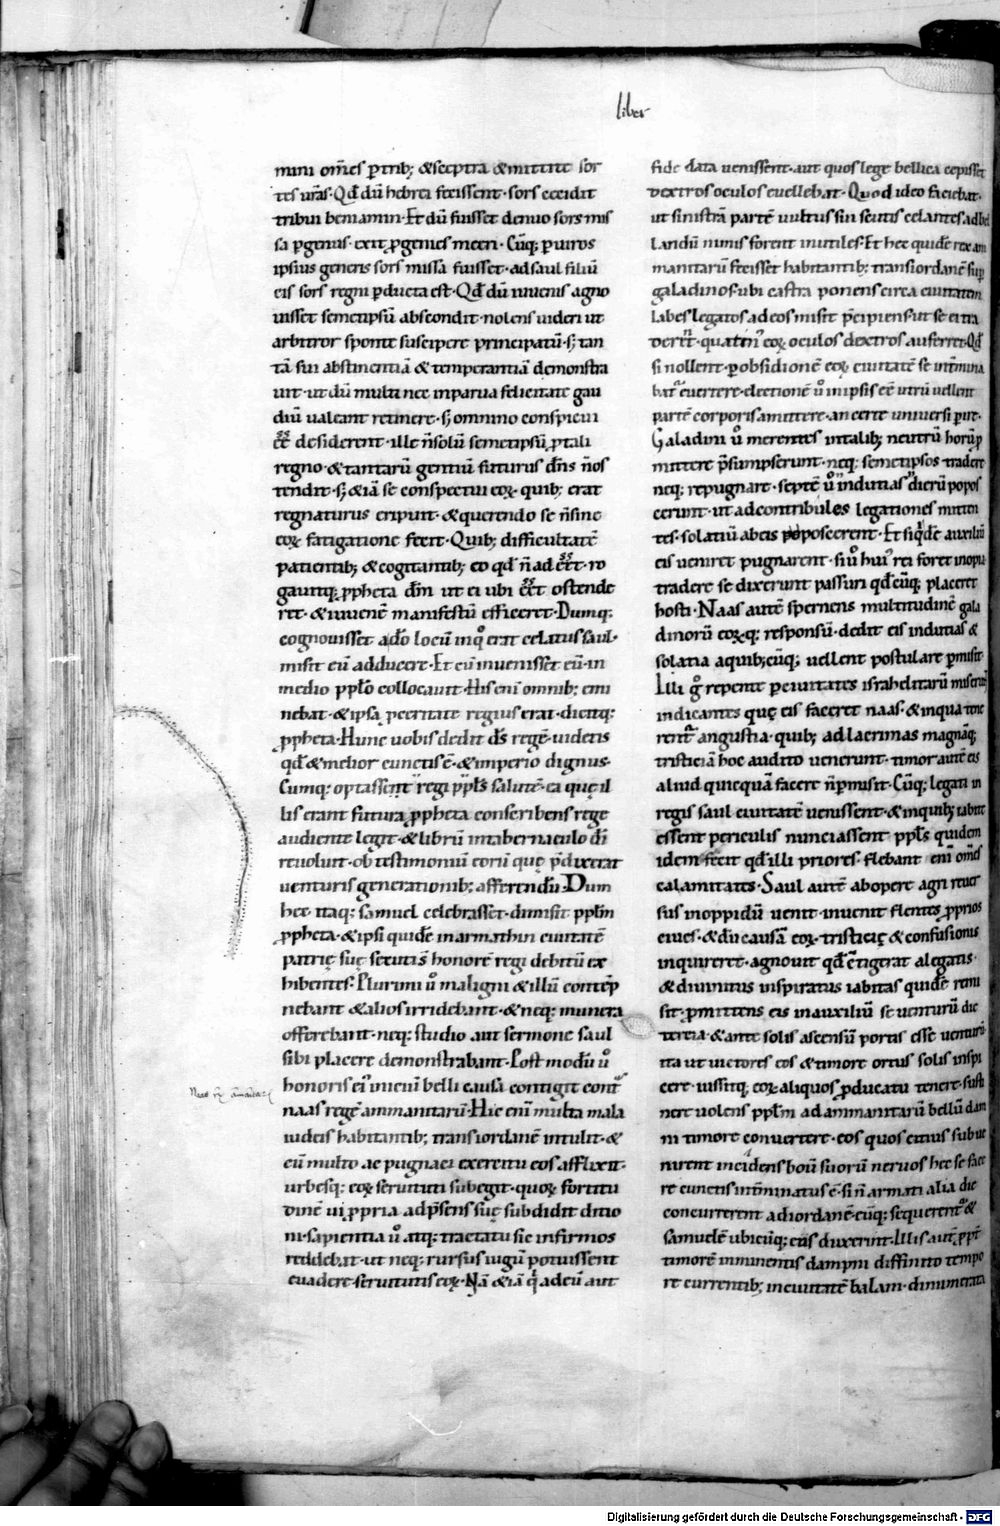 liber
mini om̄es p̱trib; & sceptra & mittite sor
tes ur̄as. Qd̄ dū hebrei fecissent. sors cecidit
tribui beniamin. Et dū fuisset denuo sors mis
sa p̱ genus. exit p̱genies mecri. Cūq; p̱ uiros
ipsius generis sors missa fuisset. ad saul filiū
cis sors regni p̱ducta est. Qd̄ dū iuuenis agno
uisset semetipsū abscondit. nolens uideri ut
arbitror sponte suscipere principatū. s; tan
tā sui abstinentiā & temperantiā demonstra
uit. ut dū multi nec in parua felicitate gau
diū ualeant retinere. s; omnino conspicui
ēēt desiderent. ille n̄ solū semetipsū p̱ tali
regno & tantarū gentiū futurus dn̄s n̄ os
tendit. s; & iā se conspectui eoꝝ. quib; erat
regnaturus eripuit. & querendo se n̄ sine
eoꝝ fatigatione fecit. Quib; difficultatē
patientib; & cogitantib; eo qd̄ n̄ adēēt. ro
gauitq; p̱pheta dm̄ ut ei ubi ēēt ostende
ret. & iuuenē manifestū efficeret. Dumq;
cognouisset a do locū in qo erat celatus saul.
misit eū adducere. Et cū inuenissēt eū. in
medio pplo collocauit. His eni omnib; emi
nebat. & ipsa p̱ceritate regius erat. dicitq;
p̱pheta. Hunc uobis dedit ds̄ regē. uidetis
qd̄ & melior cunctis ē. & imperio dignus.
Cumq; optassent regi ppls̄ salutē. ea quę il
lis erant futura p̱pheta conscribens rege
audiente legit. & librū in tabernaculo dī
reuoluit. ob testimoniū eorū quę p̄dixerat
uenturis generationib; afferendū. Dum
hec itaq; samuel celebrasset. dimisit pplm̄
p̱pheta. & ipsi quidē in armathin ciuitatē
patrię suę secutis honorē regi debitū ex
hibentes. Plurimi ů maligni & illū contēp
nebant & alios irridebant. & neq; munera
offerebant. neq; studio aut sermone saul
sibi placere demonstrabant. Post modū ů
honoris ei inicium belli causa contigit cont̃
naas regē ammanitarū. Hic eni multa mala
iudeis habitantib; trans iordanē intulit. &
cū multo ac pugnaci exercitu eos afflixit.
urbesq; eoꝝ seruituti subegit. quoꝝ fortitu
dinē ui p̱pria ad p̄sens suę subdidit ditio
ni. sapientia ů atq; tractatu sic infirmos
reddebat. ut neq; rursus iugū potuissent
euadere seruitutis eoꝝ. Nā & iā qi ad eū aut
Naas rex
fide data uenissent. aut quos lege bellica cepisset
dextros oculos euellebat. Quod ideo faciebat.
ut sinistrā partē uultus sui scutis celantes. ad bel
landū nimis forent inutiles. Et hec quidē rex am
manitarū fecisset habitantib; trans iordanē. sup̱
galadinos. ubi castra ponens circa ciuitatem
Iabes legatos ad eos misit p̄cipiens ut se ei tra
derēt. quatin' eoꝝ oculos dextros auferret. Qd̄
si nollent. p̱ obsidionē eoꝝ ciuitatē se int̃mina
bat̃ euertere. electionē ů in ipsis cē utrū uellent
partē corporis amittere. an certe uniuersi p̱ire.
Galadini ů merentes in talib; neutrū horū p̱
mittere p̄sumpserunt. neq; semetipsos tradere
neq; repugnare. septē ů indutias dierū popos
cerunt. ut ad contribules legationes mitten
tes. solatiū ab eis poposcerent. Et siqidē auxiliū
eis ueniret pugnarent. si ů hui' rei foret inopia
tradere se dixerunt passuri qd̄cūq; placeret
hosti. Naas autē spernens multitudinē gala
dinorū eoꝝq; responsū. dedit eis indutias &
solatia a quib;cūq; uellent postulare p̱misit.
Illi go repente p̱ ciuitates israhelitarū miserunt
indicantes quę eis faceret naas. & in qua tene
rent̃ angustia. quib; ad lacrimas magnāq;
tristiciā hoc audito uenerunt. timor autē eis
aliud quicquā facere n̄ p̱misit. Cūq; legati in
regis saul ciuitatē uenissent. & in quib; iabite
essent periculis nunciassent ppls̄ quidem
idem fecit qd̄ illi priores. flebant eni om̄es
calamitates. Saul autē ab opere agri reuer
sus in oppidū uenit. inuenit flentes p̱prios
ciues. & dū causā eoꝝ tristicię & confusionis
inquireret. agnouit qd̄ cōtigerat a legatis.
& diuinitus inspiratus iabitas quidē remi
sit. p̱mittens eis in auxiliū se uenturū die
tercia. & ante solis ascensū portis esse uenturū
ita ut uictores eos & timore ortus solis inspi
ceret. iussitq; eoꝝ aliquos p̱ ducatu tenere. susti
nere uolens pplm̄ ad ammanitarū bellū dam
ni timore conuertere. eos quos cuius subue
nirent incidens boū suorū neruos hec se face
re cunctis int̃minatus ē. si n̄ armati alia die
concurrerent ad iordanē. cūq; sequerent̃ &
samuelē ubicūq; eis duxerint. Illis aut̄ ppt̄
timorē imminentis dampni diffinito tempo
re currentib; in ciuitatē balam. dinumerata
Digitalisierung gefördert durch die Deutsche Forschungsgemeinschaft - DFG